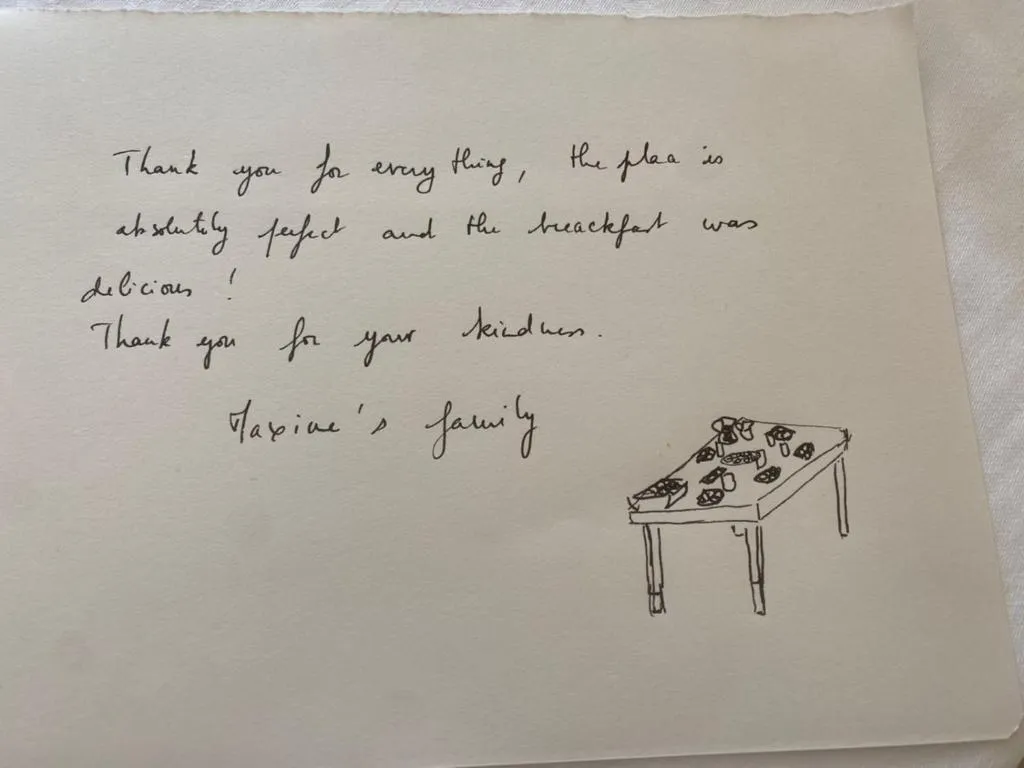 Thank you for every thing, the place is
absolutely perfect and the breackfast was
delicious !
Thank you for your kindness.
Maxime's family